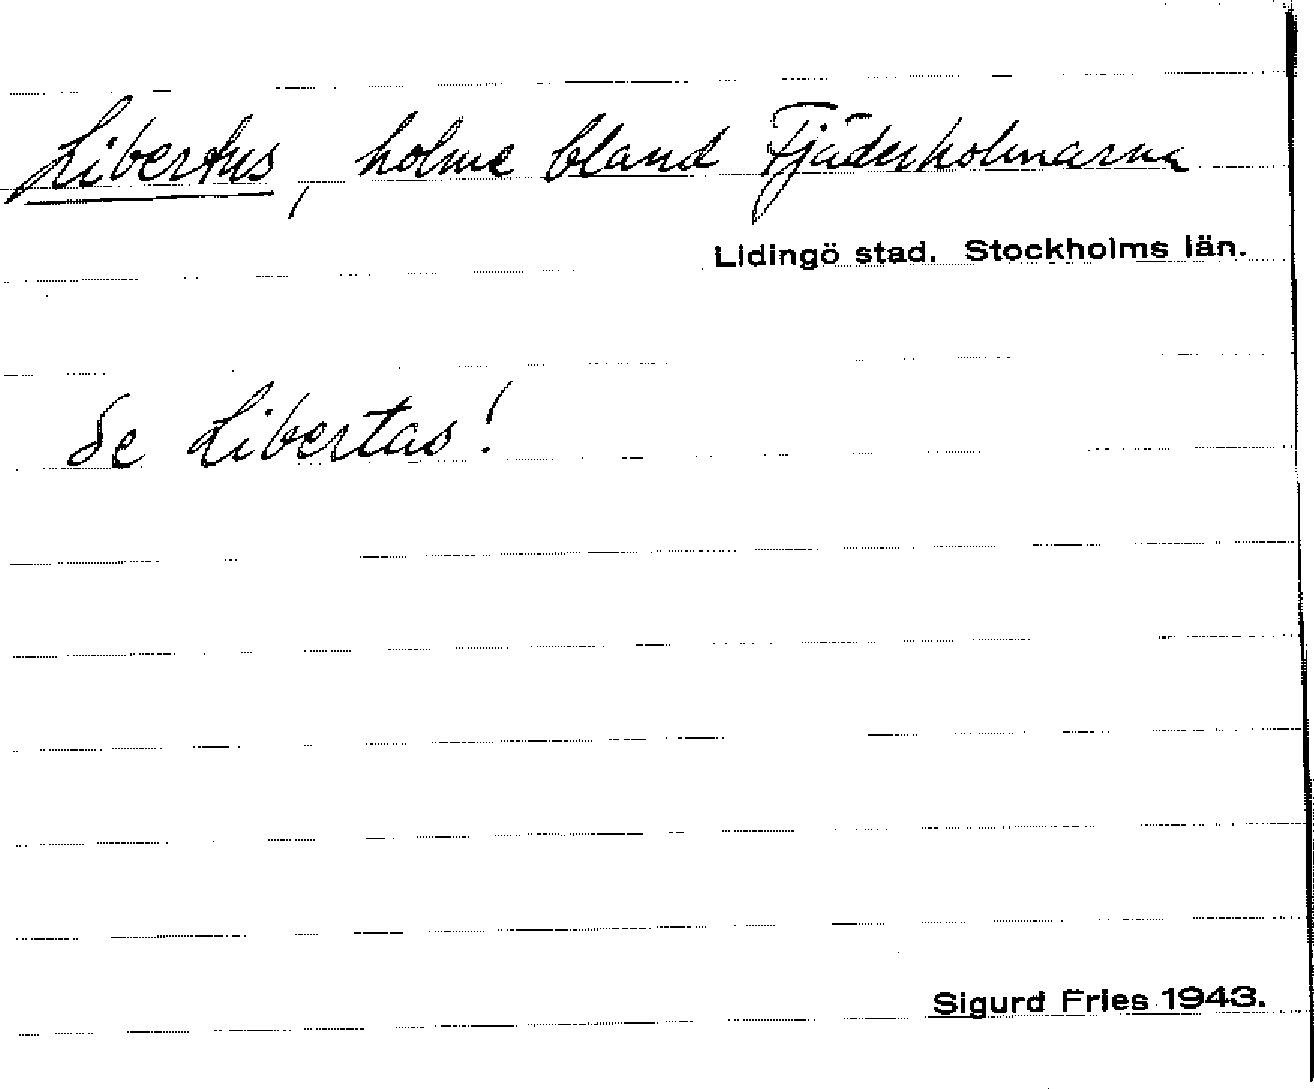 Libertus, holme bland Fjäderholmarna
Lidingö stad. Stockholms län.
Se Libertas!
Sigurd Fries 1943.